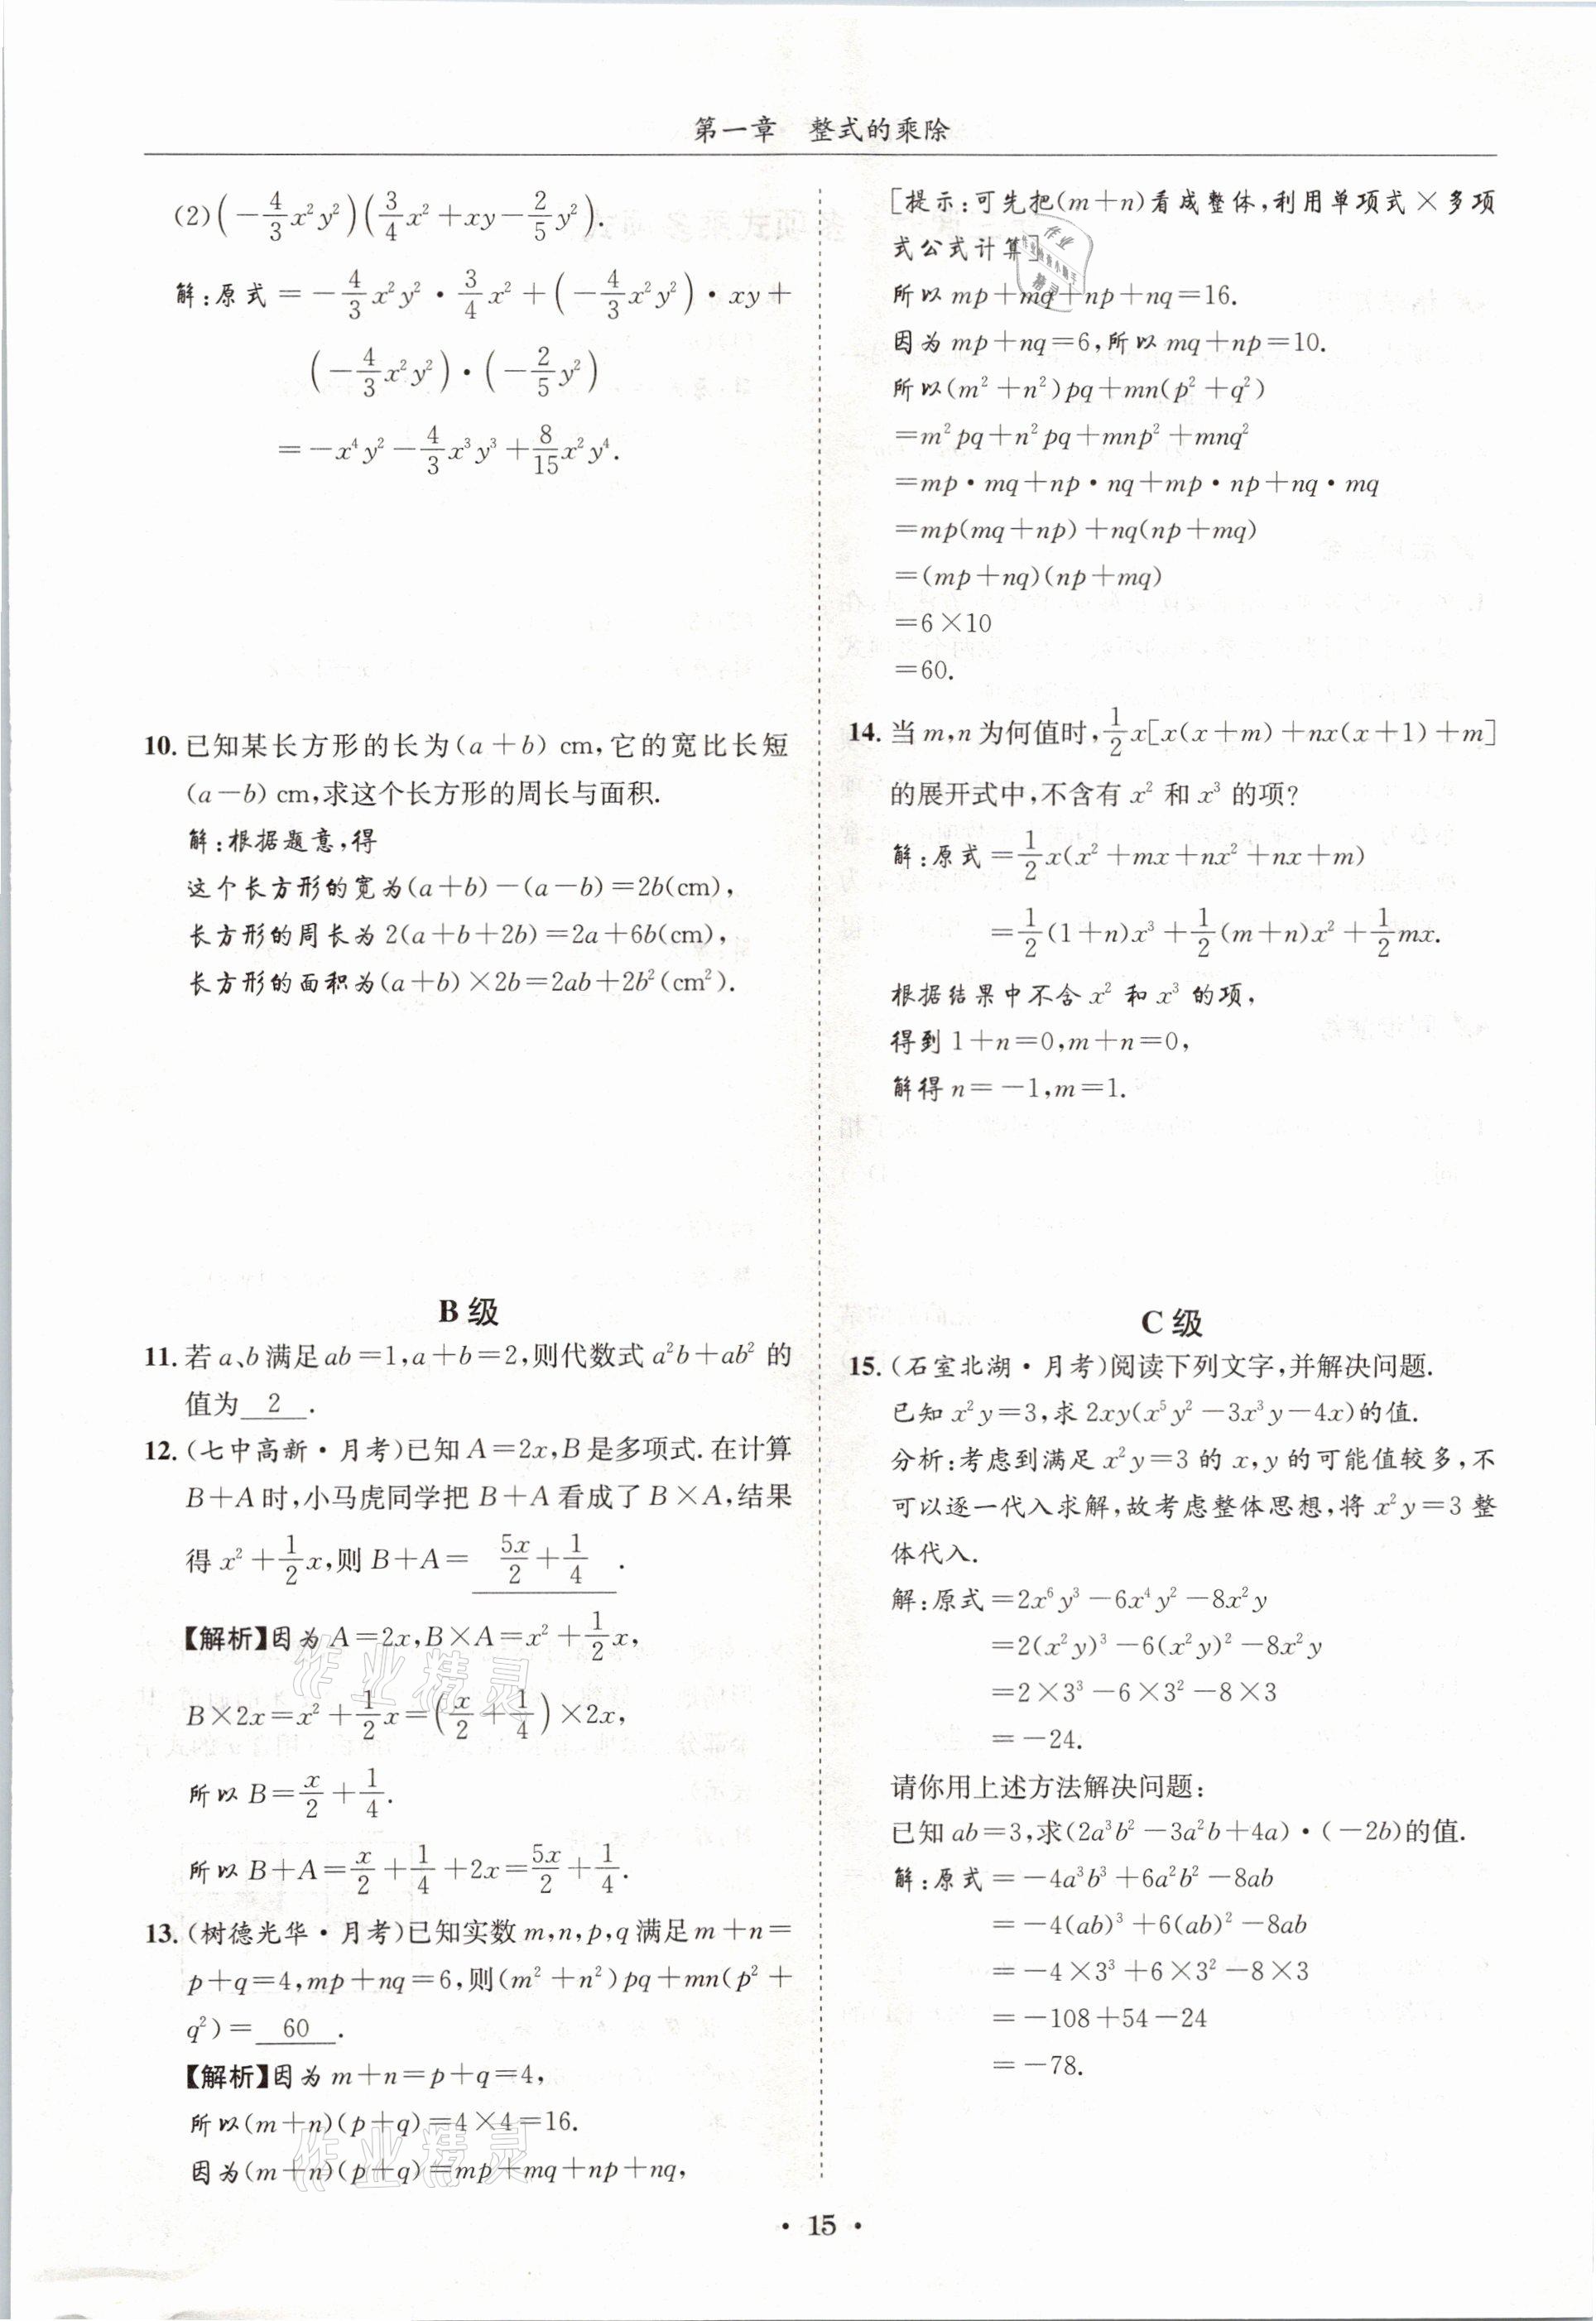 第一章 整式的乘除
(2)(-4/3x²y²)(3/4x²+xy-2/5y²).
解:原式=-4/3x²y²·3/4x²+(-4/3x²y²)·xy+
(-4/3x²y²)·(-2/5y²)
=-x⁴y²-4/3x³y³+8/15x²y⁴.
10. 已知某长方形的长为(a+b) cm,它的宽比长短
(a-b) cm,求这个长方形的周长与面积.
解:根据题意,得
这个长方形的宽为(a+b)-(a-b)=2b(cm),
长方形的周长为2(a+b+2b)=2a+6b(cm),
长方形的面积为(a+b)×2b=2ab+2b²(cm²).
B级
11. 若a、b满足ab=1,a+b=2,则代数式a²b+ab²的
值为 2 .
12. (七中高新·月考)已知A=2x,B是多项式.在计算
B+A时,小马虎同学把B+A看成了B×A,结果
得x²+1/2x,则B+A= 5x/2+1/4 .
【解析】因为A=2x,B×A=x²+1/2x,
B×2x=x²+1/2x=(x/2+1/4)×2x,
所以B=x/2+1/4.
所以B+A=x/2+1/4+2x=5x/2+1/4.
13. (树德光华·月考)已知实数m,n,p,q满足m+n=
p+q=4,mp+nq=6,则(m²+n²)pq+mn(p²+
q²)= 60 .
【解析】因为m+n=p+q=4,
所以(m+n)(p+q)=4×4=16.
因为(m+n)(p+q)=mp+mq+np+nq,
[提示:可先把(m+n)看成整体,利用单项式×多项
式公式计算]
所以mp+mq+np+nq=16.
因为mp+nq=6,所以mq+np=10.
所以(m²+n²)pq+mn(p²+q²)
=m²pq+n²pq+mnp²+mnq²
=mp·mq+np·nq+mp·np+nq·mq
=mp(mq+np)+nq(np+mq)
=(mp+nq)(np+mq)
=6×10
=60.
14. 当m,n为何值时,1/2x[x(x+m)+nx(x+1)+m]
的展开式中,不含有x²和x³的项?
解:原式=1/2x(x²+mx+nx²+nx+m)
=1/2(1+n)x³+1/2(m+n)x²+1/2mx.
根据结果中不含x²和x³的项,
得到1+n=0,m+n=0,
解得n=-1,m=1.
C级
15. (石室北湖·月考)阅读下列文字,并解决问题.
已知x²y=3,求2xy(x⁵y²-3x³y-4x)的值.
分析:考虑到满足x²y=3的x,y的可能值较多,不
可以逐一代入求解,故考虑整体思想,将x²y=3整
体代入.
解:原式=2x⁶y³-6x⁴y²-8x²y
=2(x²y)³-6(x²y)²-8x²y
=2×3³-6×3²-8×3
=-24.
请你用上述方法解决问题:
已知ab=3,求(2a³b²-3a²b+4a)·(-2b)的值.
解:原式=-4a³b³+6a²b²-8ab
=-4(ab)³+6(ab)²-8ab
=-4×3³+6×3²-8×3
=-108+54-24
=-78.
· 15 ·
作业精灵
作业精灵